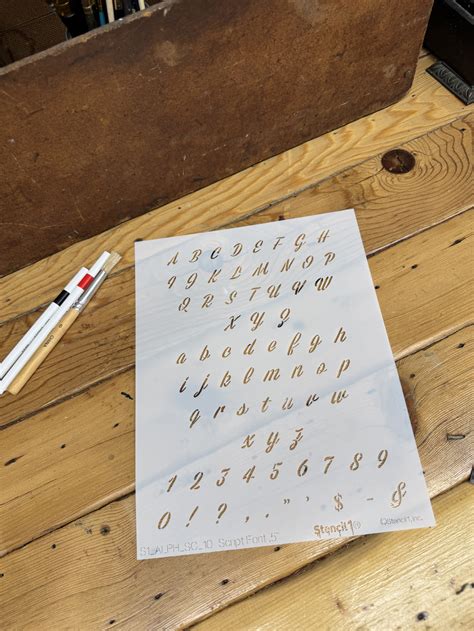 A B C D E F G H
I J K L M N O P
Q R S T U V W
X Y Z
a b c d e f g h
i j k l m n o p
q r s t u v w
x y z
1 2 3 4 5 6 7 8 9
0 ! ? , . " ' , $ - &
S1_ALPH_SC_10 Script Font .5" Stencil1® ©Stencil1, Inc.